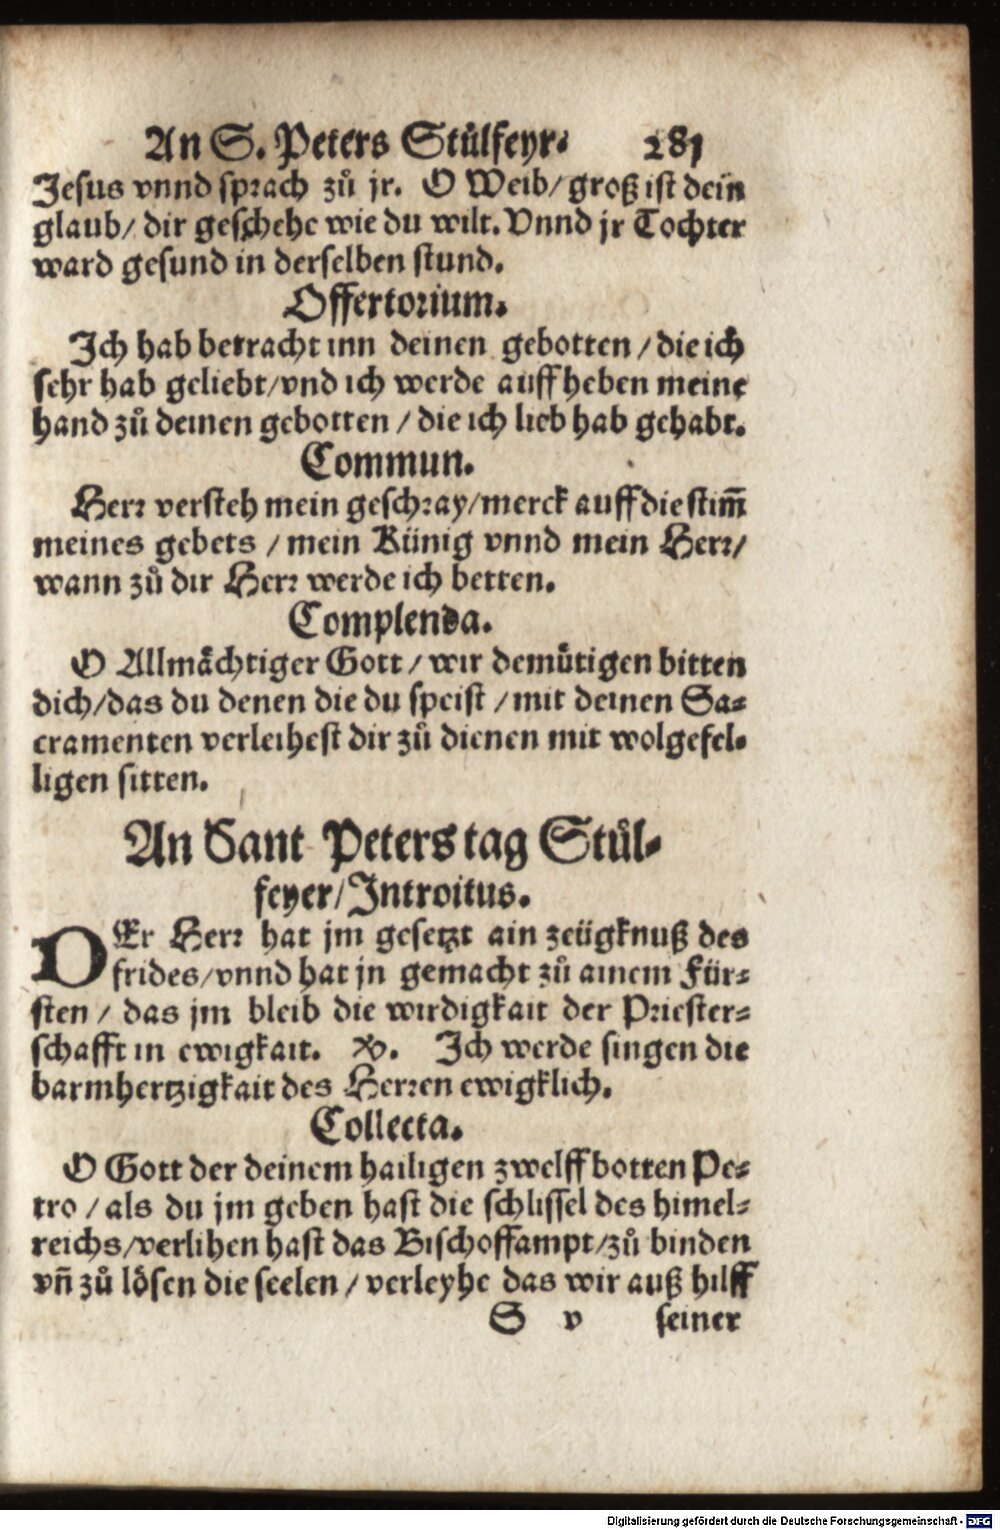 An S. Peters Stůlfeyr. 281
Jesus vnnd sprach zů jr. O Weib/ groß ist dein
glaub/ dir geschehe wie du wilt. Vnnd jr Tochter
ward gesund in derselben stund.
Offertorium.
Ich hab betracht inn deinen gebotten / die ich
sehr hab geliebt/ vnd ich werde auff heben meine
hand zů deinen gebotten / die ich lieb hab gehabt.
Commun.
Herr versteh mein geschray/ merck auff die stim̄
meines gebets / mein Künig vnnd mein Herr/
wann zů dir Herr werde ich betten.
Complenda.
O Allmächtiger Gott / wir demütigen bitten
dich/ das du denen die du speist / mit deinen Sa-
cramenten verleihest dir zů dienen mit wolgefel-
ligen sitten.
An Sant Peters tag Stůl-
feyer/ Introitus.
DEr Herr hat jm gesetzt ain zeügknuß des
frides/ vnnd hat jn gemacht zů ainem Für-
sten / das jm bleib die wirdigkait der Priester-
schafft in ewigkait. ℣. Ich werde singen die
barmhertzigkait des Herren ewigklich.
Collecta.
O Gott der deinem hailigen zwelff botten Pe-
tro / als du jm geben hast die schlissel des himel-
reichs/ verlihen hast das Bischoffampt/ zů binden
vn̄ zů lösen die seelen / verleyhe das wir auß hilff
S v seiner
Digitalisierung gefördert durch die Deutsche Forschungsgemeinschaft - DFG